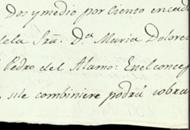 Dos y medio por ciento en cad
dela Sra. Da. Maria Dolore
Pedro del Alamo: En el concep
sele combiniere podrá cobra